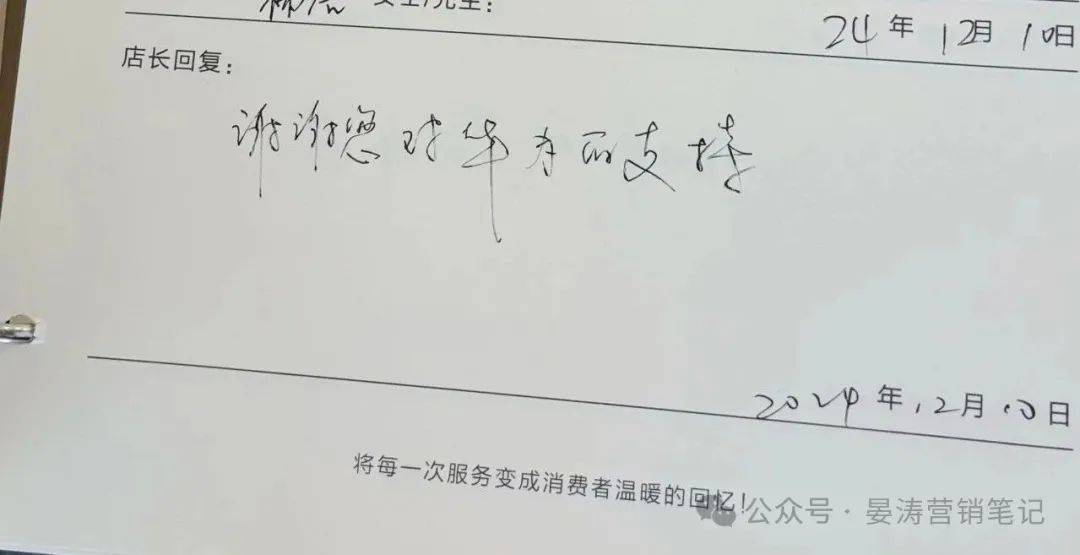 女士/先生:
24年12月10日
店长回复:
谢谢您对华为的支持
2024年12月10日
将每一次服务变成消费者温暖的回忆!
公众号·晏涛营销笔记